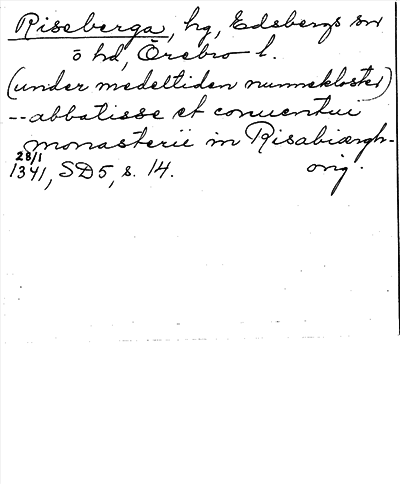 Riseberga, hg, Edsbergs sn
ö hd, Örebro l.
(under medeltiden nunnekloster)
-- abbatisse et conuentui
monasterii in Risabiærgh -
28/1
1341, SD5, s. 14. orig.